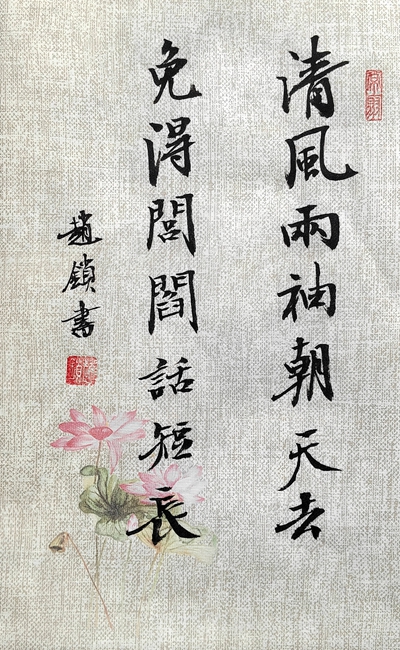 清風兩袖朝天去
免得閭閻話短長
趙鎖書